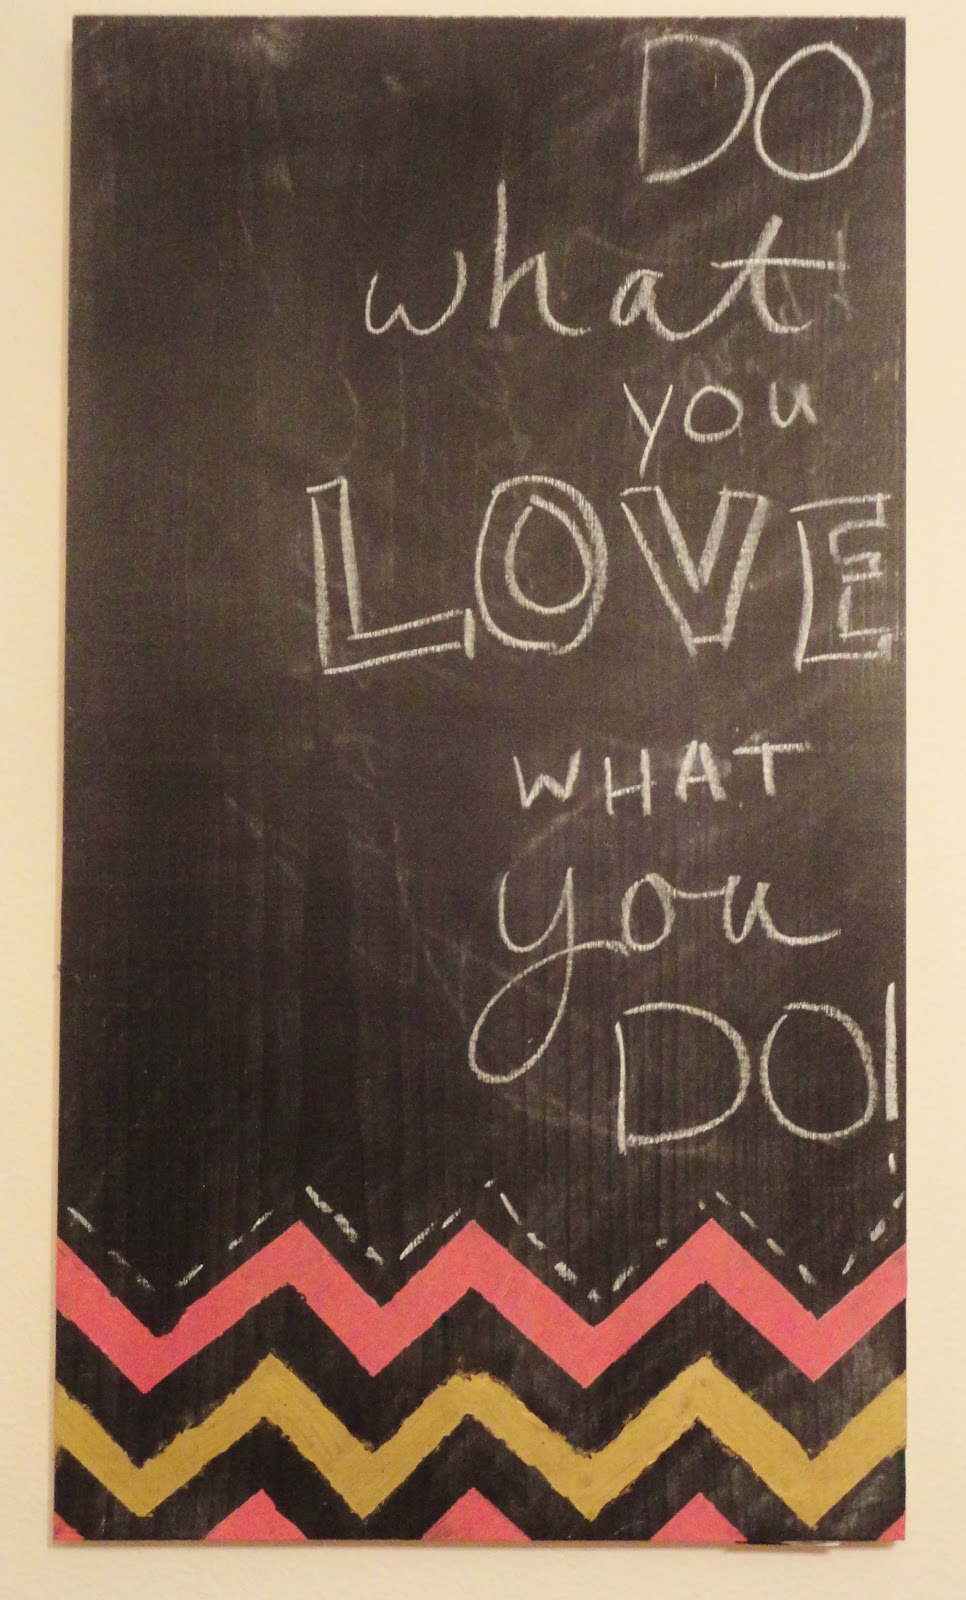 DO
what
you
LOVE
WHAT
you
DO!